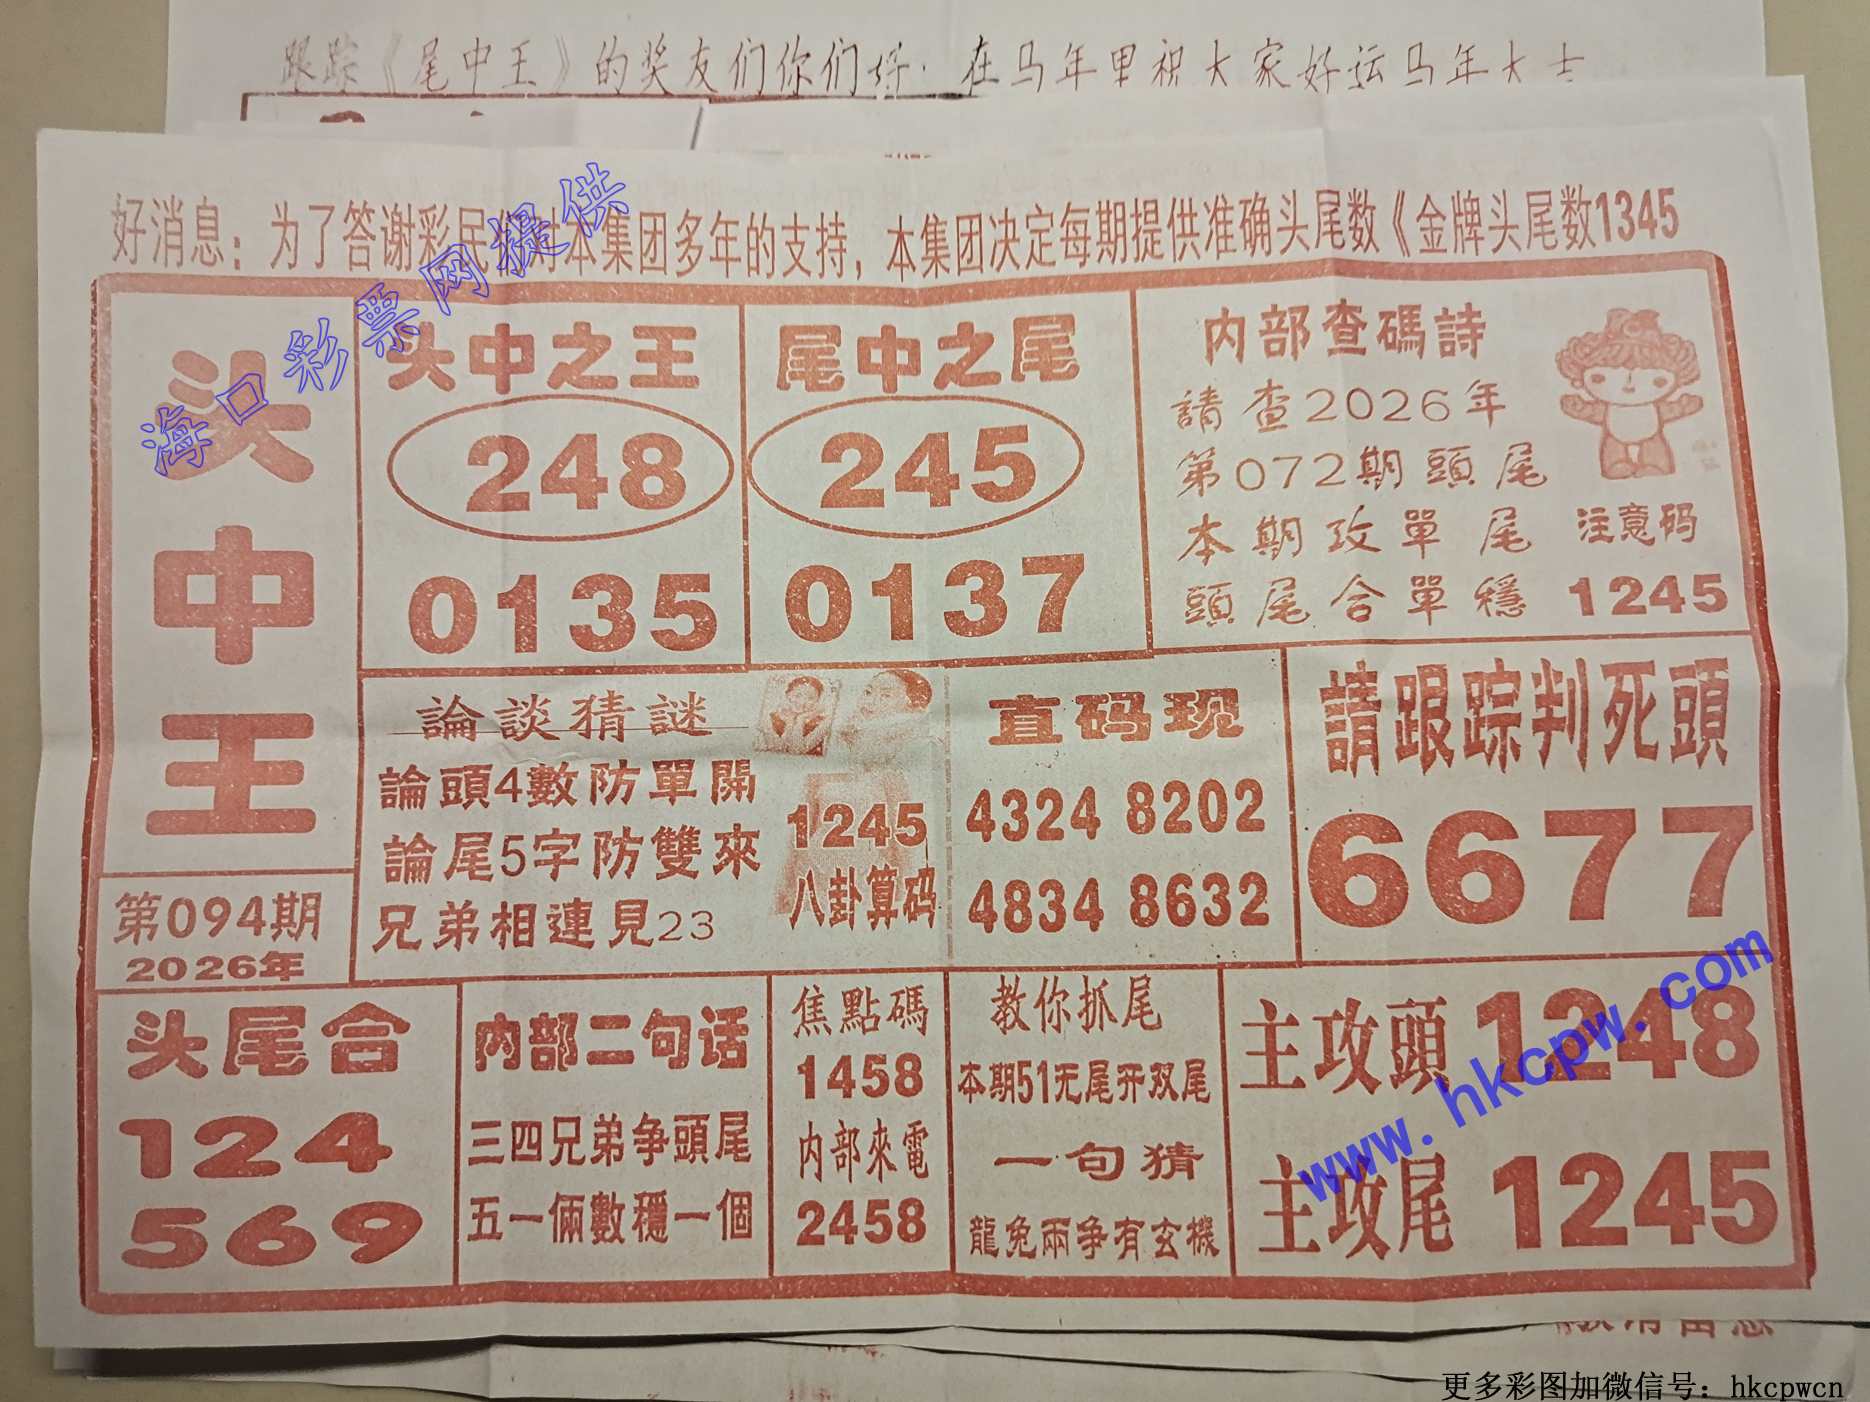 跟踪《尾中王》的奖友们你们好·在马年里祝大家好运马年大吉
好消息：为了答谢彩民们对本集团多年的支持，本集团决定每期提供准确头尾数《金牌头尾数1345
海口彩票网提供
头中王
第094期
2026年
头中之王
248
0135
尾中之尾
245
0137
内部查碼詩
請查2026年
第072期頭尾
本期攻單尾
頭尾合單穩
注意码
1245
論談猜謎
論頭4數防單開
論尾5字防雙來
兄弟相連見23
1245
八卦算码
直码现
4324 8202
4834 8632
請跟踪判死頭
6677
头尾合
124
569
内部二句话
三四兄弟争頭尾
五一倆數穩一個
焦點碼
1458
内部來電
2458
教你抓尾
本期51无尾开双尾
一句猜
龍兔兩爭有玄機
主攻頭 1248
主攻尾 1245
www.hkcpw.com
更多彩图加微信号：hkcpwcn